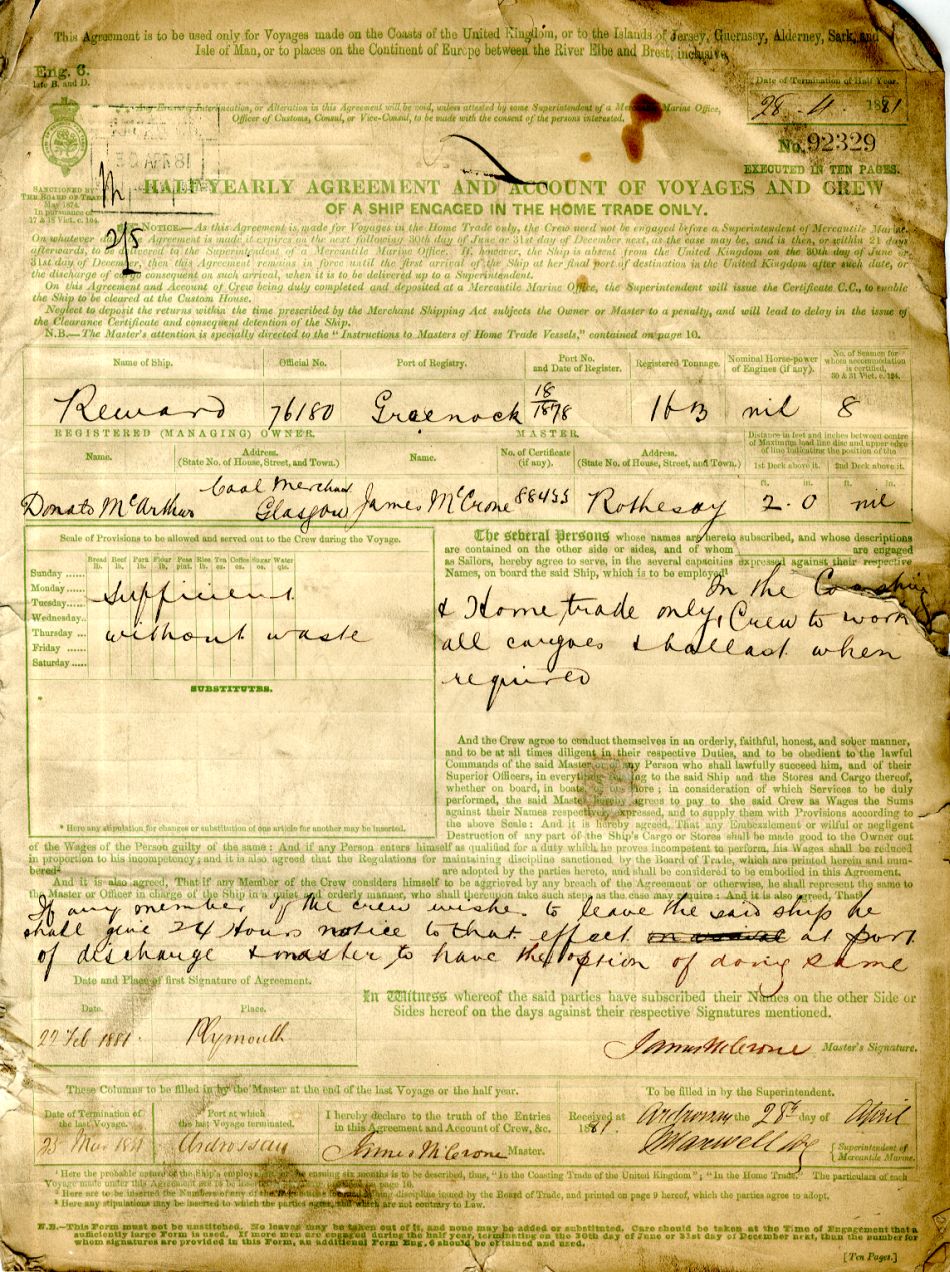 This Agreement is to be used only for Voyages made on the Coasts of the United Kingdom, or to the Islands of Jersey, Guernsey, Alderney, Sark, and
Isle of Man, or to places on the Continent of Europe between the River Elbe and Brest, inclusive.
Eng. 6.
Date of Termination of Half Year.
28 . 4 . 1881
Any Erasure, Interlineation, or Alteration in this Agreement will be void, unless attested by some Superintendent of a Mercantile Marine Office,
Officer of Customs, Consul, or Vice-Consul, to be made with the consent of the persons interested.
No. 92329
EXECUTED IN TEN PAGES.
30 APR 81
SANCTIONED BY
THE BOARD OF TRADE
May 1874.
In pursuance of
17 & 18 Vict. c. 104.
HALF-YEARLY AGREEMENT AND ACCOUNT OF VOYAGES AND CREW
OF A SHIP ENGAGED IN THE HOME TRADE ONLY.
2/5
NOTICE.—As this Agreement is made for Voyages in the Home Trade only, the Crew need not be engaged before a Superintendent of Mercantile Marine.
On whatever Agreement is made it expires on the next following 30th day of June or 31st day of December next, as the case may be, and is then, or within 21 days
afterwards, to be delivered to the Superintendent of a Mercantile Marine Office. If, however, the Ship is absent from the United Kingdom on the 30th day of June or
31st day of December, then this Agreement remains in force until the first arrival of the Ship at her final port of destination in the United Kingdom after such date, or
the discharge of cargo consequent on such arrival, when it is to be delivered up to a Superintendent.
On this Agreement and Account of Crew being duly completed and deposited at a Mercantile Marine Office, the Superintendent will issue the Certificate C.C., to enable
the Ship to be cleared at the Custom House.
Neglect to deposit the returns within the time prescribed by the Merchant Shipping Act subjects the Owner or Master to a penalty, and will lead to delay in the issue of
the Clearance Certificate and consequent detention of the Ship.
N.B.—The Master's attention is specially directed to the "Instructions to Masters of Home Trade Vessels," contained on page 10.
Name of Ship. Official No. Port of Registry. Port No. and Date of Register. Registered Tonnage. Nominal Horse-power of Engines (if any). No. of Seamen for whom accommodation is certified, 30 & 31 Vict. c. 124.
Reward 76180 Greenock 18/1878 163 nil 8
REGISTERED (MANAGING) OWNER. MASTER. Distance in feet and inches between centre of Maximum load line disc and upper edge of line indicating the position of the
Name. Address. (State No. of House, Street, and Town.) Name. No. of Certificate (if any). Address. (State No. of House, Street, and Town.) 1st Deck above it. 2nd Deck above it.
ft. in. ft. in.
Coal Merchant
McArthur Glasgow James McCrone 88455 Rothesay 2 . 0 nil
Scale of Provisions to be allowed and served out to the Crew during the Voyage.
Bread lb. Beef lb. Pork lb. Flour lb. Peas pint. Rice lb. Tea oz. Coffee oz. Sugar oz. Water qts.
Sunday ......
Monday ......
Tuesday......
Wednesday..
Thursday ...
Friday ......
Saturday .....
Sufficient
without waste
SUBSTITUTES.
* Here any stipulation for changes or substitution of one article for another may be inserted.
The several Persons whose names are hereto subscribed, and whose descriptions
are contained on the other side or sides, and of whom are engaged
as Sailors, hereby agree to serve, in the several capacities expressed against their respective
Names, on board the said Ship, which is to be employed
In the Coasting
& Home trade only, Crew to work
all cargoes & ballast when
required
And the Crew agree to conduct themselves in an orderly, faithful, honest, and sober manner,
and to be at all times diligent in their respective Duties, and to be obedient to the lawful
Commands of the said Master or any Person who shall lawfully succeed him, and of their
Superior Officers, in everything relating to the said Ship and the Stores and Cargo thereof,
whether on board, in boats, or on shore; in consideration of which Services to be duly
performed, the said Master hereby agrees to pay to the said Crew as Wages the Sums
against their Names respectively expressed, and to supply them with Provisions according to
the above Scale: And it is hereby agreed, That any Embezzlement or wilful or negligent
Destruction of any part of the Ship's Cargo or Stores shall be made good to the Owner out
of the Wages of the Person guilty of the same: And if any Person enters himself as qualified for a duty which he proves incompetent to perform, his Wages shall be reduced
in proportion to his incompetency; and it is also agreed that the Regulations for maintaining discipline sanctioned by the Board of Trade, which are printed herein and num-
bered² are adopted by the parties hereto, and shall be considered to be embodied in this Agreement.
And it is also agreed, That if any Member of the Crew considers himself to be aggrieved by any breach of the Agreement or otherwise, he shall represent the same to
the Master or Officer in charge of the Ship in a quiet and orderly manner, who shall thereupon take such steps as the case may require: And it is also agreed, That³
If any member of the crew wishes to leave the said ship he
shall give 24 Hours notice to that effect on arrival at port
of discharge & master to have the option of doing same
Date and Place of first Signature of Agreement.
Date. Place.
22 Feb 1881 Plymouth
In Witness whereof the said parties have subscribed their Names on the other Side or
Sides hereof on the days against their respective Signatures mentioned.
James McCrone Master's Signature.
These Columns to be filled in by the Master at the end of the last Voyage or the half year. To be filled in by the Superintendent.
Date of Termination of the last Voyage. Port at which the last Voyage terminated. I hereby declare to the truth of the Entries in this Agreement and Account of Crew, &c.
25 Mar 1881 Ardrossan James McCrone Master.
Received at Ardrossan the 28th day of April
1881.
Maxwell Superintendent of Mercantile Marine.
¹ Here the probable nature of the Ship's employment for the ensuing six months is to be described, thus, "In the Coasting Trade of the United Kingdom"; "In the Home Trade." The particulars of each
Voyage made under this Agreement are to be inserted page 10.
² Here are to be inserted the Numbers of any of the discipline issued by the Board of Trade, and printed on page 9 hereof, which the parties agree to adopt.
³ Here any stipulations may be inserted to which the parties agree, and which are not contrary to Law.
N.B.—This Form must not be unstitched. No leaves may be taken out of it, and none may be added or substituted. Care should be taken at the Time of Engagement that a
sufficiently large Form is used. If more men are engaged during the half year, terminating on the 30th day of June or 31st day of December next, than the number for
whom signatures are provided in this Form, an additional Form Eng. 6 should be obtained and used.
[Ten Pages.]